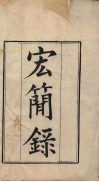 宏簡錄